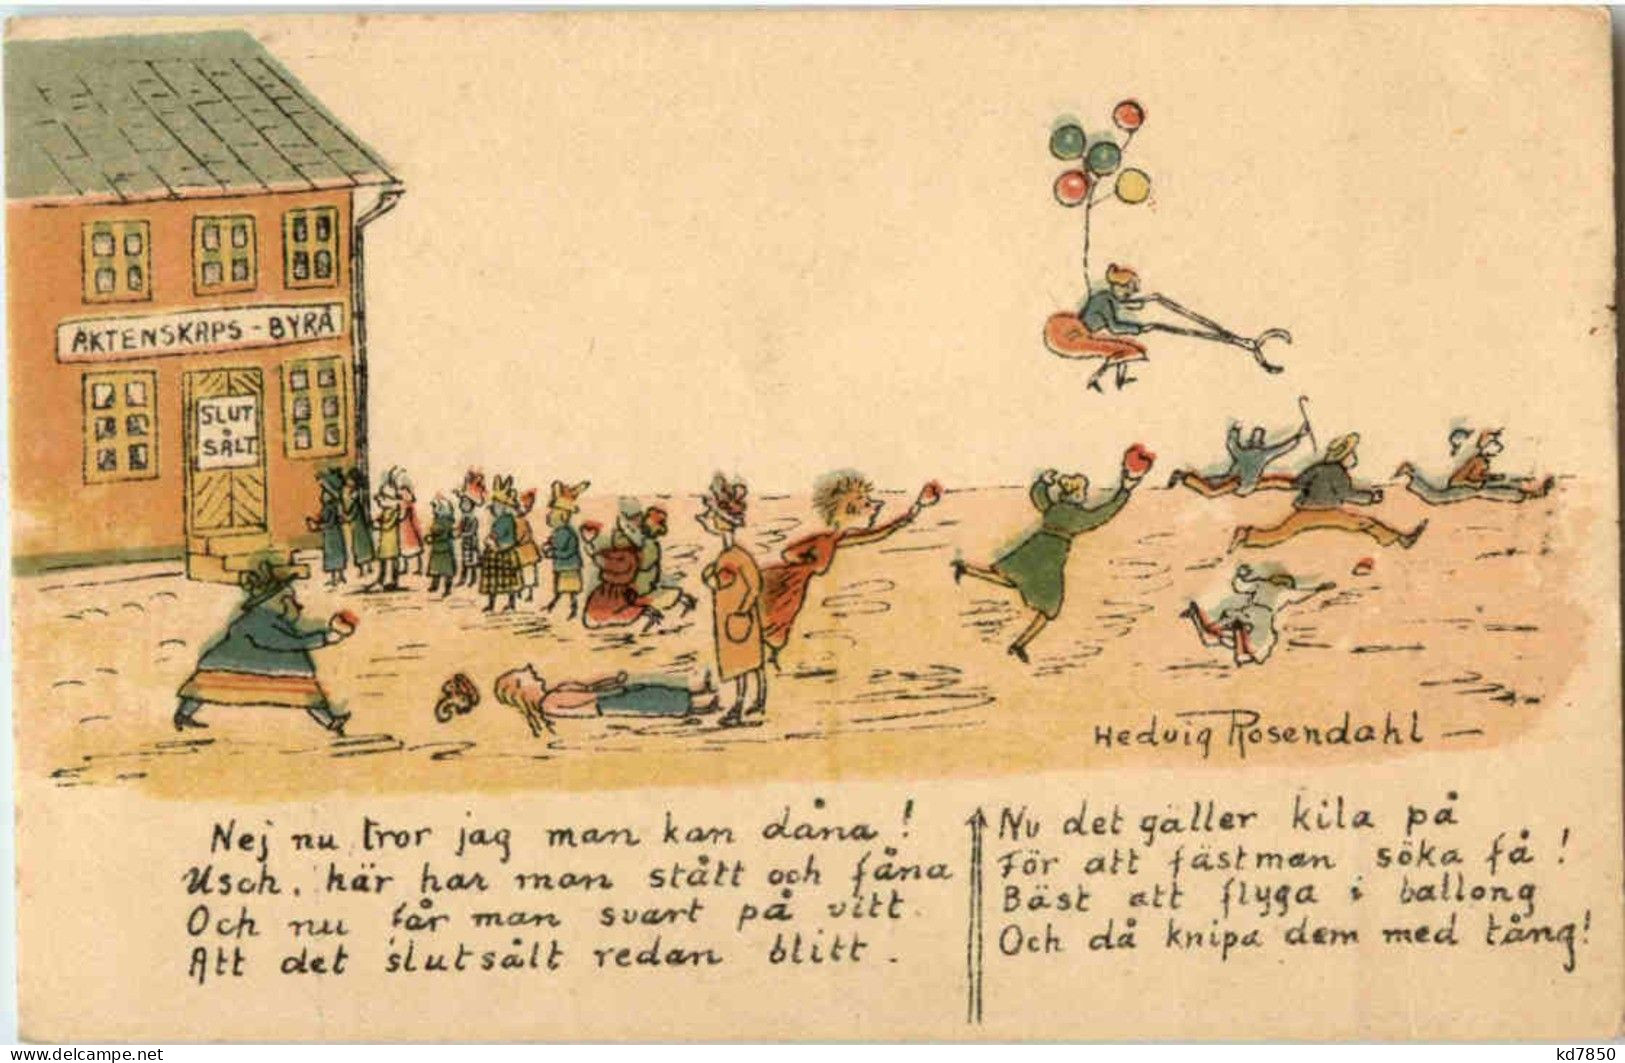 ÄKTENSKAPS-BYRÅ
SLUT
SÅLT
Hedvig Rosendahl
Nej nu tror jag man kan dåna!
Usch, här har man stått och fåna
Och nu får man svart på vitt.
Att det slutsålt redan blitt.
Nu det gäller kila på
För att fästman söka få!
Bäst att flyga i ballong
Och då knipa dem med tång!
kd7850